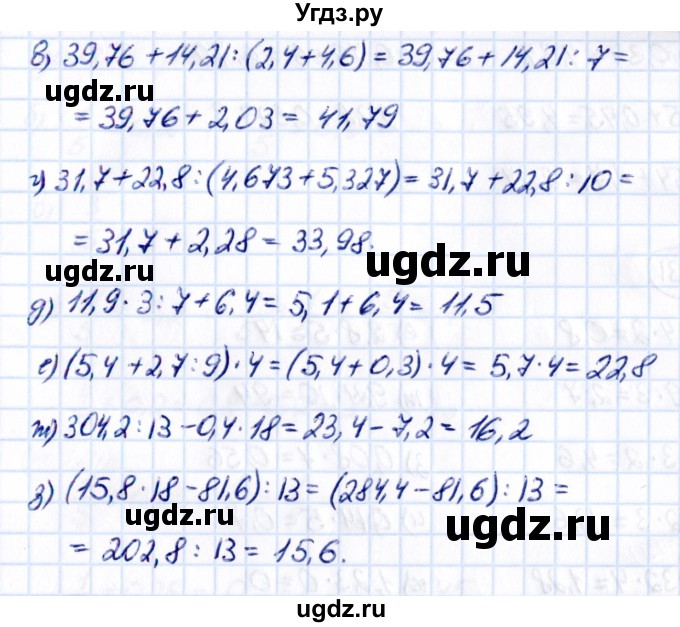 Угдз.ру
в) 39,76 + 14,21 : (2,4 + 4,6) = 39,76 + 14,21 : 7 =
ugdz.ru
= 39,76 + 2,03 = 41,79
ugdz.ru
г) 31,7 + 22,8 : (4,673 + 5,327) = 31,7 + 22,8 : 10 =
= 31,7 + 2,28 = 33,98.
ugdz.ru
ugdz.ru
д) 11,9 · 3 : 7 + 6,4 = 5,1 + 6,4 = 11,5
е) (5,4 + 2,7 : 9) · 4 = (5,4 + 0,3) · 4 = 5,7 · 4 = 22,8
ж) 304,2 : 13 - 0,4 · 18 = 23,4 - 7,2 = 16,2
з) (15,8 · 18 - 81,6) : 13 = (284,4 - 81,6) : 13 =
ugdz.ru
ugdz.ru
= 202,8 : 13 = 15,6.
ugdz.ru